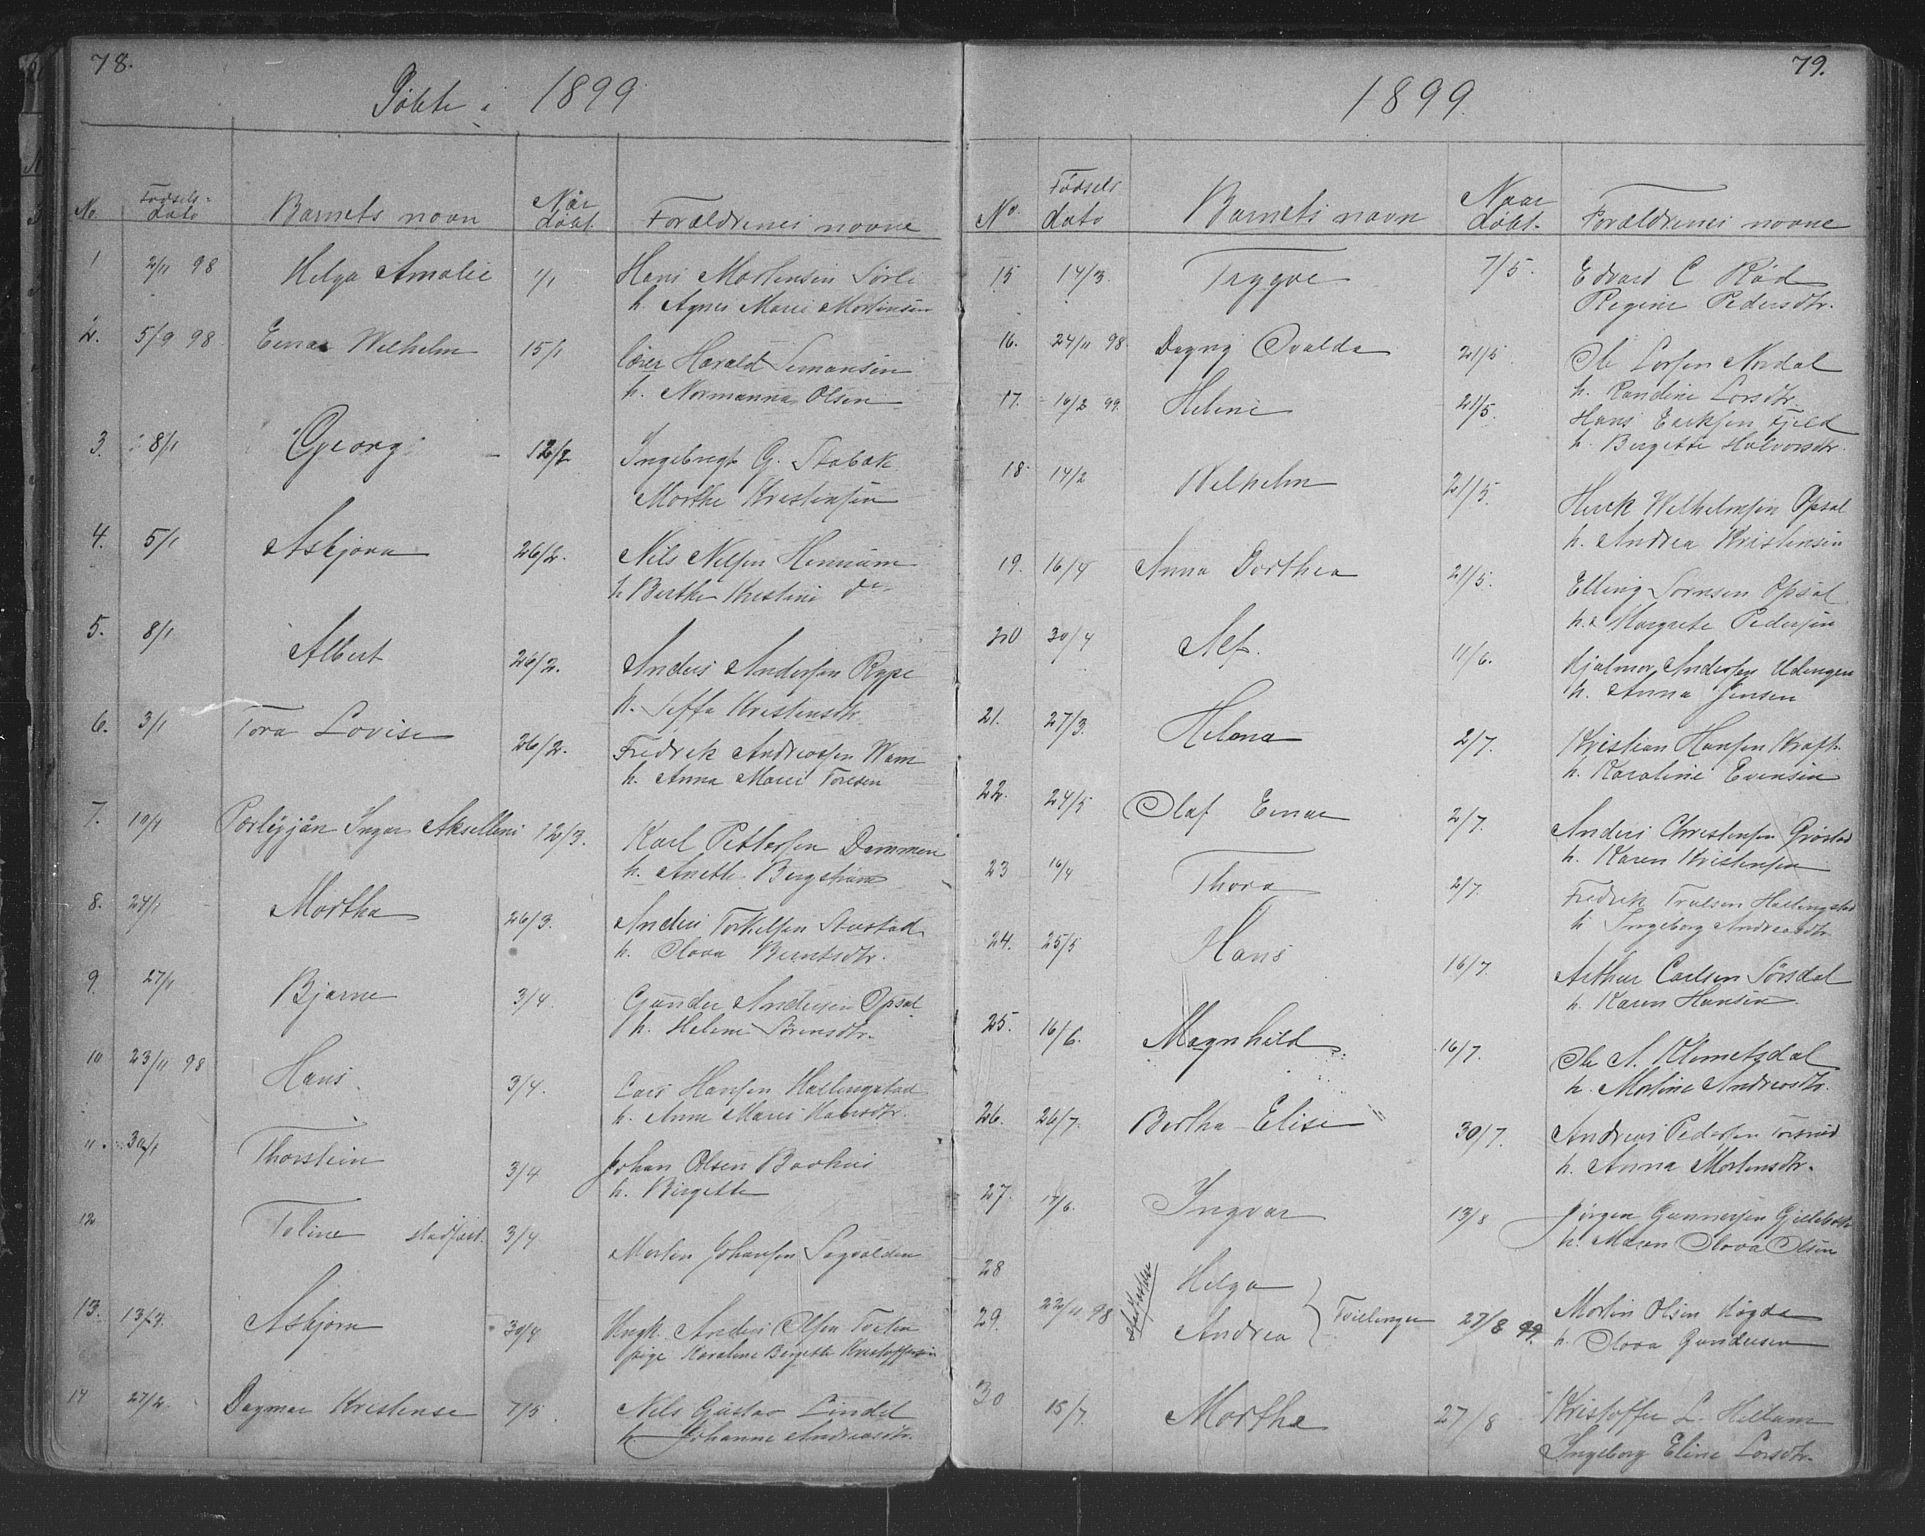 78.
Döbte i 1899
No. Fødsels-dato Barnets navn Når døbt. Forældrenes navne
1 2/11 98 Helga Amalie 1/1 Hans Mortensen Sørli
h. Agnes Marie Mortensen
2. 5/9 98 Einar Wilhelm 15/1 Lærer Harald Simonsen
h. Normanna Olsen
3. 8/1 Georg 12/2 Ingebregt G. Stabæk
Marthe Kristensen
4. 5/1 Asbjørn 26/2. Nils Nilsen Hennum
h. Berthe Kristine do
5. 8/1 Albert 26/2. Anders Andersen Rype
h. Kristensdtr.
6. 3/1 Tora Lovise 26/2. Fredrik Andreassen Wam
h. Anna Marie Toresen
7. 19/1 Ingar 12/3. Karl Pettersen Dammen
h. Anette Bergstrøm
8. 24/1 Martha 26/3. Anders Torkelsen
h. Olava Berntsdtr.
9. 27/1 Bjarne 3/4. Gunder Andersen Opsal
h. Helene Sørensdtr.
10 23/11 98 Hans. 3/4. Lars Hansen Hallingstad
h. Anne Marie Hansdtr.
11. 30/1 Thorstein 3/4 Johan Olsen Baahus
h. Birgitte
12 Toline stadfæst. 3/4 Morten Johansen
13. 13/3. Asbjørn 30/4 Ungk. Anders Olsen
pige Karoline Birgitte Kristoffersen
14 27/2. Dagmar Kristense 7/5. Nils Gustav Lindal
h. Johanne Andreasdtr.
79.
1899.
No. Fødsels dato Barnets navn Naar døbt. Forældrenes navne
15 14/3. Trygve 7/5. Edvard C Rød
Regine Pedersdtr.
16. 24/11 98. Dagny Ovalda 21/5. Ole Larsen Nordal
h. Randine Larsdtr.
17. 16/2 99. Helene 21/5. Hans Eriksen Fjeld
h. Birgitte Halvorsdtr.
18 14/2 Wilhelm 21/5. Wilhelmsen Opsal
h. Andrea Kristensen
19. 16/4 Anna Dorthea 21/5. Elling Sørnsen Opsal
h. Margrete Pedersen
20 30/4 Alf. 11/6. Hjalmar Andersen Udengen
h. Anna Jensen
21. 27/3. Helena 2/7. Kristian Hansen Kraft
h. Karoline Evensen
22. 24/5 Olaf Einar 2/7. Anders Christensen Grøstad
h. Karen Kristensen
23 16/4 Thora 2/7. Fredrik Trulsen Hallingstad
h. Ingeborg Andreasdtr.
24. 25/5 Hans 16/7. Arthur Carlsen Sørsdal
h. Karen Hansen
25. 16/6. Magnhild 16/7. Ole A. Klemetsdal
h. Martine Andreasdtr.
26. 26/7. Bertha Elise 30/7. Andreas Pedersen
h. Anna Mortensdtr.
27. 17/6. Ingvar 13/8 Jørgen Gunnersen Gillebæk
h. Maren Olava Olsen
28 Helga
29. 22/11 98 Andrea Tvillinger 27/8 99. Martin Olsen Høgda
h. Olava Gundersen
30 15/7. Marthe 27/8 Kristoffer L. Hellum
Ingeborg Eline Larsdtr.